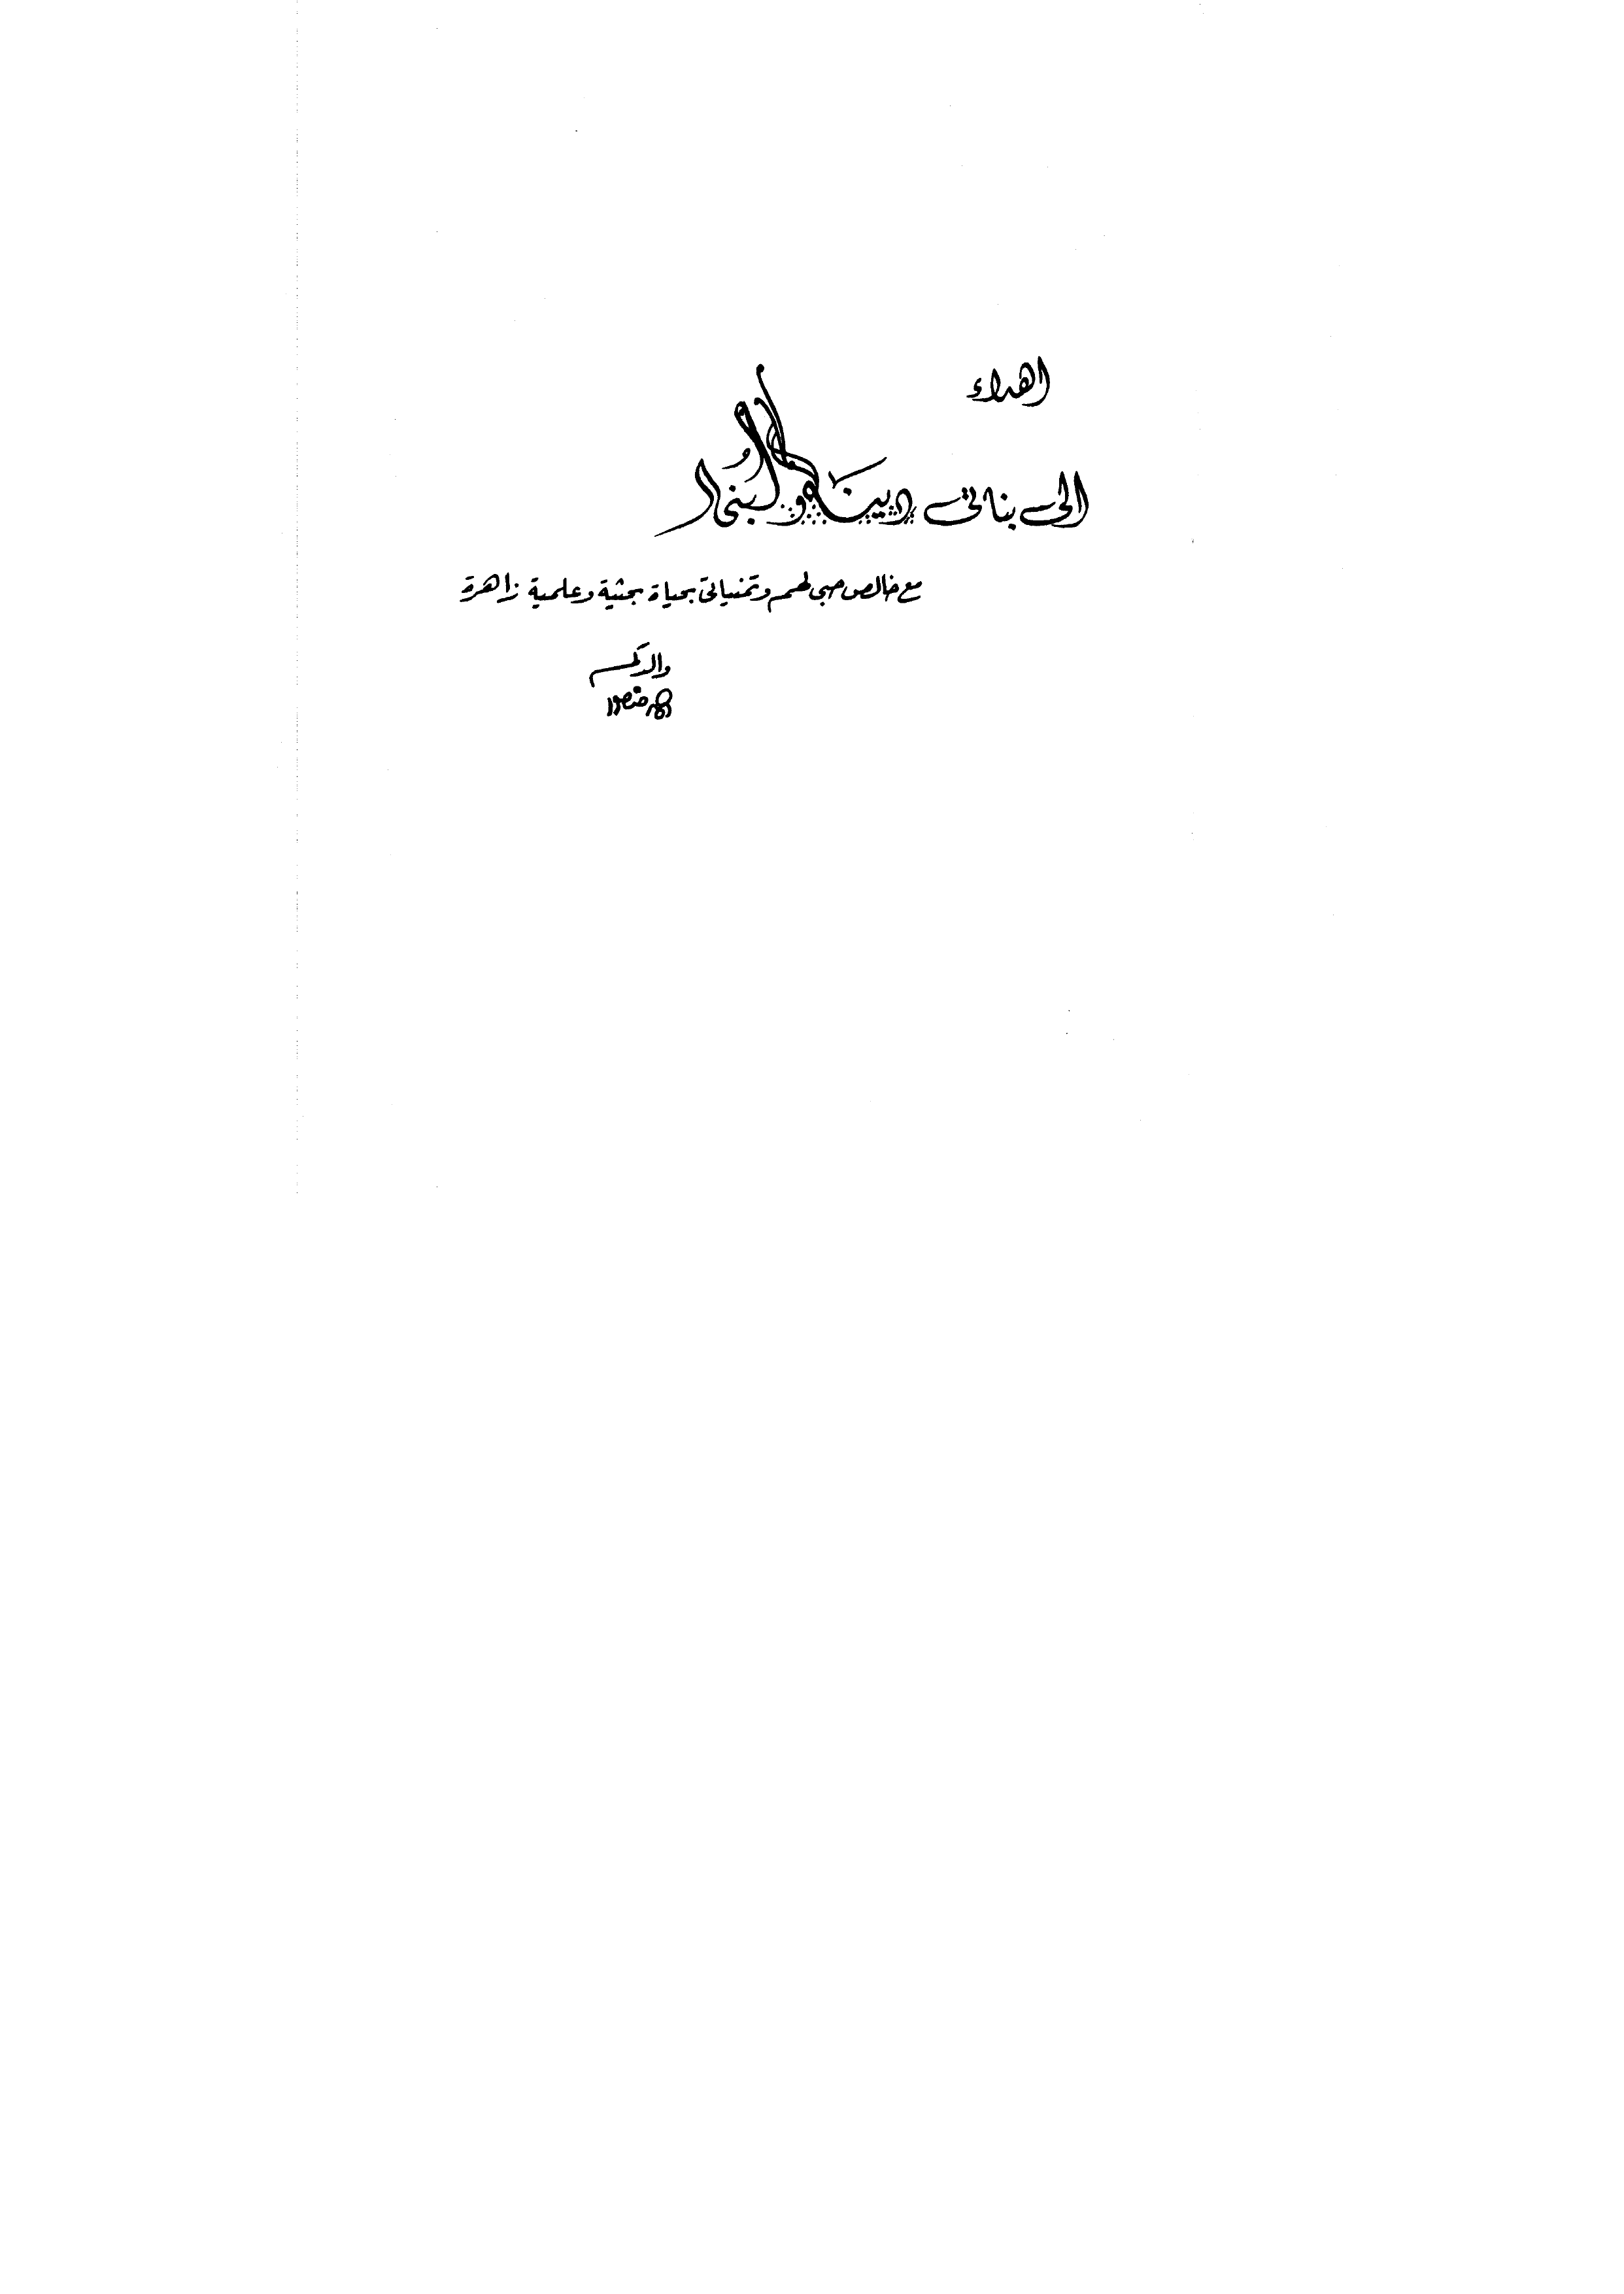 اهداء
الى بناتى دينا و لبنى
مع خالص حبى لهم و تمنياتى بحياة بحثية و علمية زاهرة
والدكم